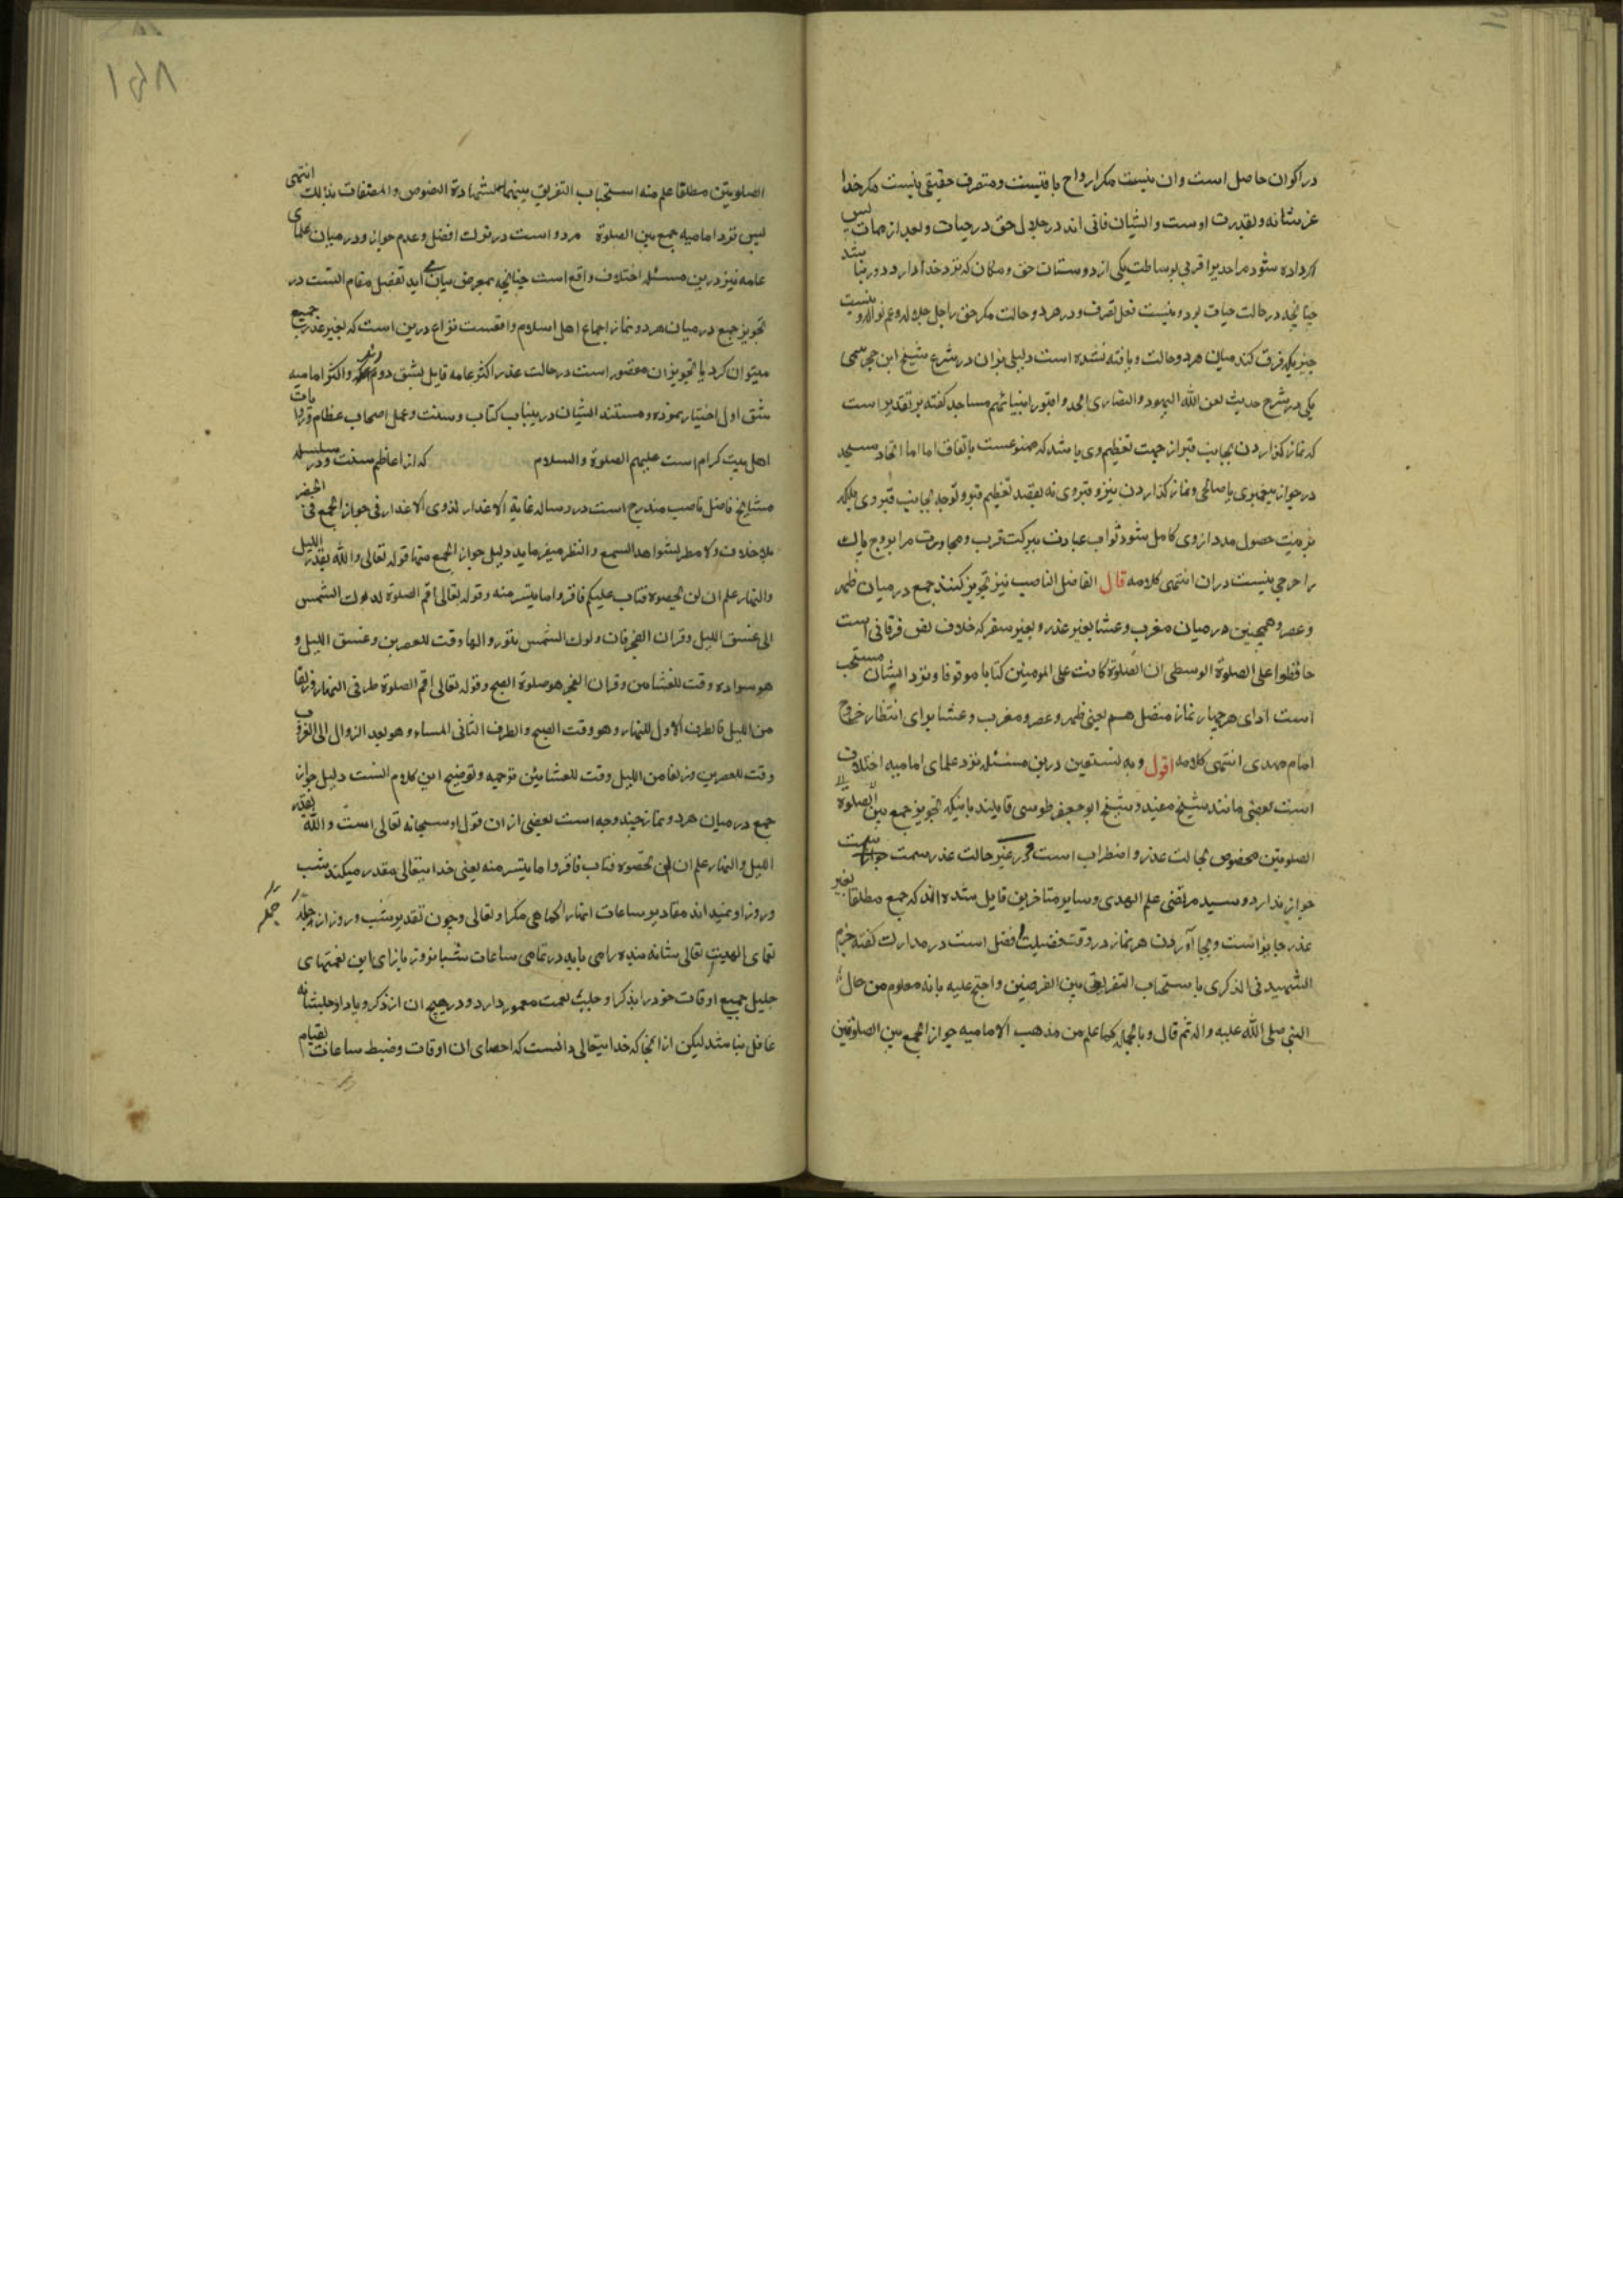 در اکوان حاصل است وان نیست مکر ارواح باقیست ومتصرف حقیقی نیست مکر خدا
عز شانه وبقدرت اوست وایشان فانی اند در جلال حق در حیات وبعد از ممات پس
اکر داده شود مر احدیرا قربی بوساطت یکی از دوستان حق ومکان که نزد خدا دارد دور نباشد
چنانچه در حالت حیات بود ونیست فعل تصرف ودر هر دو حالت مکر حق راجل جلاله وعم نواله ونیست
چیزیکه فرق کند میان هر دو حالت ویافته نشده است دلیلی بران در شرع شیخ ابن حجر هیتمی
مکی در شرح حدیث لعن الله الیهود والنصاری اتخذوا قبور انبیائهم مساجد کفته بر تقدیر است
که نماز کذاردن بجانب قبر از جهت تعظیم وی باشد که ممنوعست باتفاق اما اتخاد مسجد
در جوار پیغمبری یا صالحی ونماز کذاردن نیز و قبر وی نه بقصد تعظیم قبر وتوجه بجانب قبر وی بلکه
به نیت حصول مدد از وی کامل شود ثواب عبادت ببرکت قرب ومجاورت مر ان روح پاک
را حرجی نیست دران انتهی کلامه قال الفاضل الناصب نیز تجویز کنند جمع درمیان ظهر
وعصر وهمچنین درمیان مغرب وعشا بغیر عذر وبغیر سفر که خلاف نص فرقانی است
حافظوا علی الصلوة الوسطی ان الصلوة کانت علی المومنین کتابا موقوفا ونزد ایشان مستحب
است ادای هر چهار نماز متصل هم یعنی ظهر وعصر ومغرب وعشا برای انتظار خروج
امام مهدی انتهی کلامه اقول وبه نستعین درین مسئله نزد علمای امامیه اختلاف
است بعضی مانند شیخ مفید وشیخ ابوجعفر طوسی قایلند باینکه تجویز جمع بین الصلوة
الصلوتین مخصوص بحالت عذر واضطراب است ودر غیر حالت عذر سمت
جواز ندارد وسید مرتضی علم الهدی وسایر متاخرین قایل شده اند که جمع مطلقا بغیر
عذر جایز است وبجا آوردن هر نماز در وقت فضیلت افضل است در مدارک کفته جزم
الشهید فی الذکری باستحباب التفریق بین الفرضین واحتج علیه بانه معلوم من حال
النبی صلی الله علیه واله ثم قال وبالجمله کما علم من مذهب الامامیه جواز الجمع بین الصلوتین
الصلوتین مطلقا علم منه استحباب التفریق بینهما بشهادة النصوص والمصنفات بذلک انتهی
پس نزد امامیه جمع بین الصلوة مردو است در ترک افضل وعدم جواز ودرمیان علمای
عامه نیز درین مسئله اختلاف واقع است چنانچه بمعرض بیان می آید تفصیل مقام انست در
تجویز جمع درمیان هر دو نماز اجماع اهل اسلام واقعست نزاع درین است که بغیر عذر جمیع
میتوان کرد یا تجویز ان مقصور است در حالت عذر اکثر عامه قایل بشق دوم واکثر امامیه
شق اول اختیار نموده ومستند ایشان درینباب کتاب وسنت وعمل اصحاب عظام وروایات
اهل بیت کرام است علیهم الصلوة والسلام که از اعاظم سنت ودر سلسله
مشایخ فاضل ناصب مندرج است در رساله غایة الاعذار لذوی الاعذار فی جواز الجمع فی الحضر
بلا خلاف ولا مطر بشواهد السمع والنظر میفرماید دلیل جواز الجمع منها قوله تعالی والله یقدر اللیل
والنهار علم ان لن تحصوه فتاب علیکم فاقروا ما یتسر منه وقوله تعالی اقم الصلوة لدلوک الشمس
الی غسق اللیل وقران الفجر فان دلوک الشمس بنور والها وقت للعصرین وغسق اللیل و
هو سواده وقت للعشامن وقران الفجر هو صلوة الصبح وقوله تعالی اقم الصلوة طرفی النهار وزلفا
من اللیل فالطرف الاول للنهار وهو وقت الصبح والطرف الثانی المساء وهو بعد الزوال الی الغروب
وقت للعصرین وزلفا من اللیل وقت للعشایئن ترجمه وتوضیح این کلام انست دلیل جواز
جمع درمیان هر دو نماز چند وجه است بعضی از ان قول او سبحانه تعالی است والله یقدر
اللیل والنهار علم ان لن تحصوه فتاب فاقروا ما یتسر منه یعنی خدایتعالی مقدر میکند شب
وروز او نمیداند مقادیر ساعات انهارا کماهی مکر او تعالی وچون تقدیر شب وروز از جمله
نعمای الهیت تعالی شانه بنده را می باید در تمامی ساعات شبانروز بازای این نعمتهای
جلیل جمیع اوقات خود را بذکر او جلیت نعمت معمور دارد ودر هیچ ان از ذکر ویاد او جلشانه
غافل نباشد لیکن از انجا که خدایتعالی دانست که احصای ان اوقات وضبط ساعات بقیام